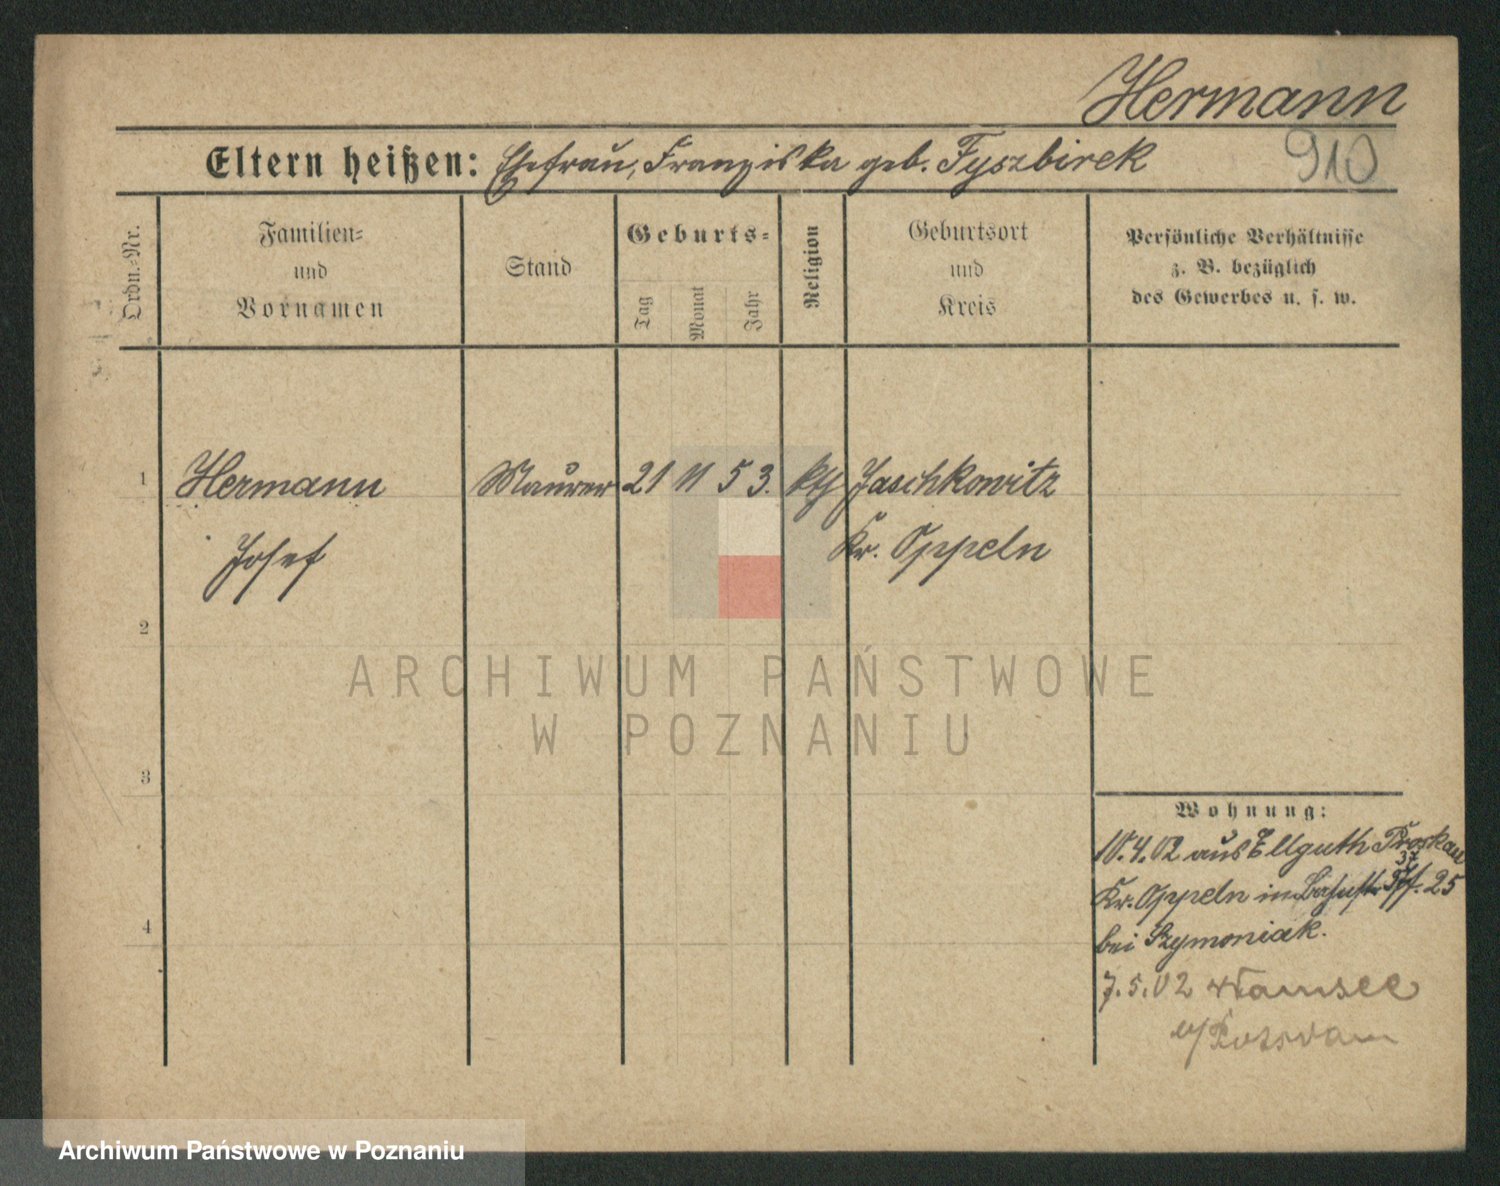 Hermann
910
Eltern heißen: Ehefrau, Franziska geb. Fyszbirek
Ordn.-Nr.
Familien-
und
Vornamen
Stand
Geburts-
Tag
Monat
Jahr
Religion
Geburtsort
und
Kreis
Persönliche Verhältnisse
z. B. bezüglich
des Gewerbes u. s. w.
1 Hermann Maurer 21 11 53. kth Jaschkowitz
Josef Kr. Oppeln
2
ARCHIWUM PAŃSTWOWE
W POZNANIU
3
Wohnung:
10.4.02 aus Ellguth Proskau
37
Kr. Oppeln in 25
4
bei Szymoniak.
7.5.02 Wannsee
b/Potsdam
Archiwum Państwowe w Poznaniu